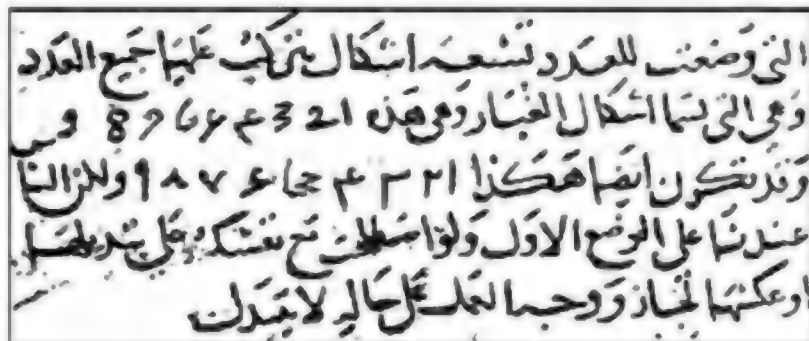 التي وضعت للعدد تسعة اشكال يتركب عليها جميع العدد
وهي التي تسما اشكال الغبار وهي هذه 1 2 3 ع 6 7 8 9
وقد تكون ايضا هكذا ١ ٢ ٣ ع ٦ ٧ ٨ ٩ ولكن الناس
عندنا على الوضع الاول ولو اصطلحت مع نفسك على تبديلها
او عكسها لجاز ووجه العمل على حاله لا يتبدل